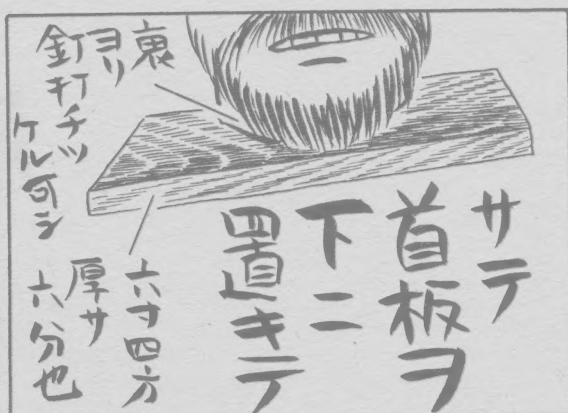 サテ
首板ヲ
下ニ
置キテ
裏
ヨリ
釘打チツ
ケル可シ
六寸四方
厚サ
六分也